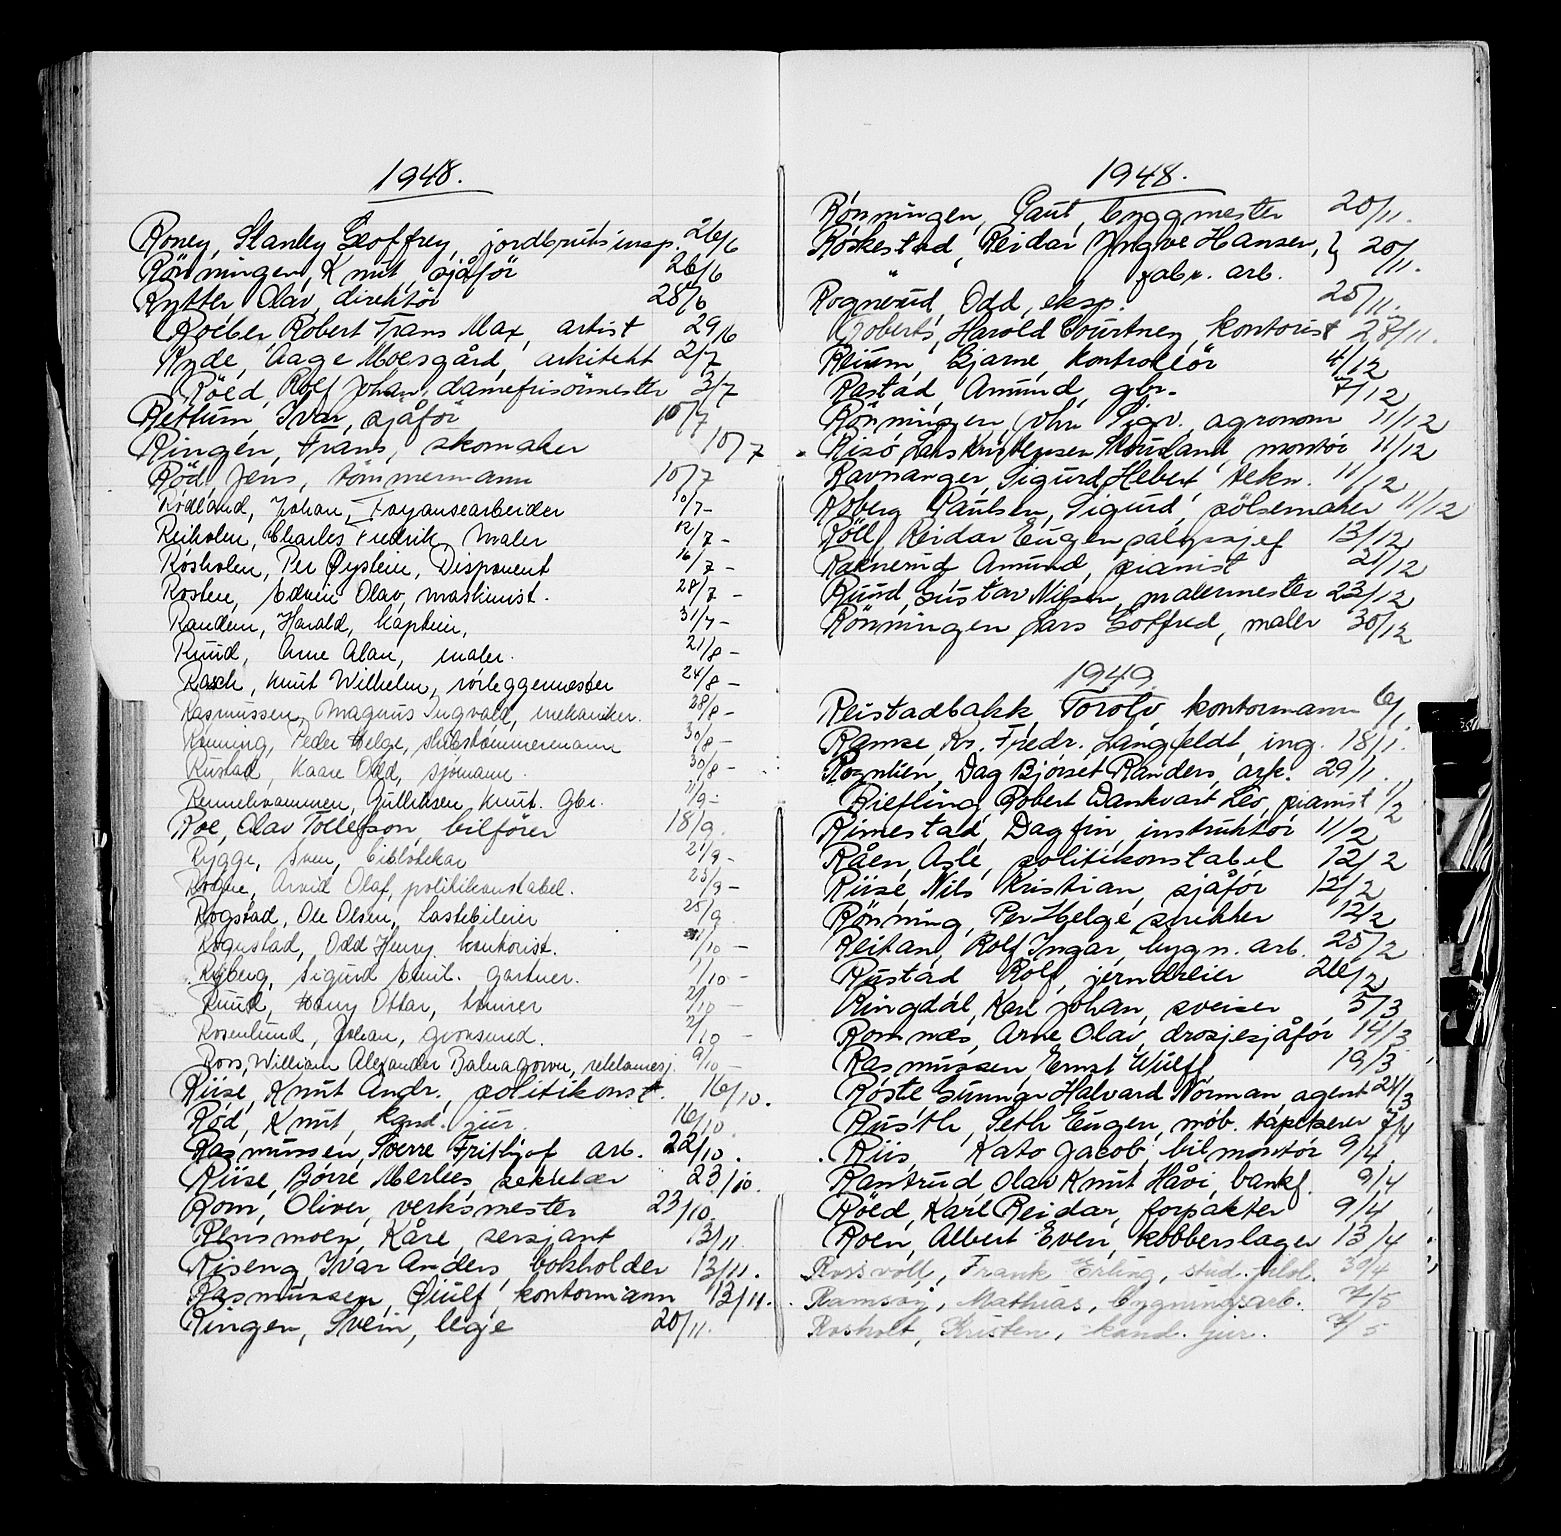 1948.
Roney, Stanley Geoffrey, jordbruksinsp. 26/6
Rönningen, Knut, sjåför 26/6
Rytter Olav, direktör 28/6
Roeber, Robert Frans Max, artist 29/6
Ryde, Aage Moesgård, arkitekt 2/7
Röed, Rolf Johan, damefrisörmester 3/7
Rettum, Ivar, sjåför 10/7
Ringen, Frans, skomaker 10/7
Röd, Jens, tömmermann 10/7
Rödland, Johan, Fayansearbeider 10/7 -
Reiholm, Charles Fredrik, Maler 12/7 -
Rosholm, Per Øystein, Disponent 16/7 -
Rosten, Edvin Olav, maskinist. 28/7 -
Randem, Harald, kaptein, 31/7 -
Ruud, Arne Alan, maler. 21/8 -
Rasch, Knut Wilhelm, rörleggermester 24/8 -
Rasmussen, Magnus Ingvald, mekaniker. 28/8 -
Rönning, Peder Helge, skibstømmermann 30/8 -
Rustad, Kaare Odd, sjømann. 30/8 -
Gulliksen Knut. Gbr. 11/9 -
Roe, Olav Tollefson, bilförer 18/9.
Rygge, Sven, bibliotekar 21/9 -
Rogne, Arvid Olaf, politikonstabel. 23/9 -
Rogstad, Ole Olsen, lastebileier 25/9
Rognstad, Odd Henry, kontorist. 1/10 -
Ryberg, Sigurd Emil. gartner. 1/10 -
Ruud, Harry Ottar, murer 2/10 -
Rosenlund, Johan, grossend. 2/10 -
Ross, William Alexander Balnagown, reklamesj. 9/10 -
Riise, Knut Andr., politikonst. 16/10.
Röd, Knut, kand. jur. 16/10
Rasmussen, Sverre Frithjof arb. 22/10.
Riise, Börre Merlees, sekretær 23/10.
Rom, Oliver, verksmester 23/10.
Rensmoen, Kåre, sersjant 13/11.
Riseng, Ivar Anders, bokholder 13/11.
Rasmussen, Øiulf, kontormann 13/11.
Ringen, Svein, lege 20/11.
1948.
Rönningen, Gaut, byggmester 20/11.
Röskestad, Reidar Yngve Hansen, } 20/11.
fabr. arb.
Rognerud, Odd, eksp. 25/11.
Roberts, Harold Courtney, kontorist 27/11.
Reium, Bjarne, kontrollör 4/12
Rastad, Amund, gbr. 7/12
Rönningen, John Sigv., agronom 11/12
Risö, Lars Kristensen, montör 11/12
Ravnanger, Sigurd Helbert, tekn. 11/12
Roberg Paulsen, Sigurd, pölsemaker 11/12
Röll, Reidar Eugen, salgssjef 13/12
Raknerud, Amund, pianist 21/12
Ruud, Gustav Nilsen, malermester 23/12
Rönningen, Lars Gotfred, maler 30/12
1949.
Reistadbakk, Torolv, kontormann 6/1.
Ramse, Kr. Fredr. Langfeldt, ing. 18/1.
Rognlien, Dag Bjørset Randers, ark. 29/1.
Riefling, Robert Dankvart Leo, pianist 1/2
Rimestad, Dagfin, instruktör 11/2
Råen, Asle, politikonstabel 12/2
Riise Nils Kristian, sjåför 12/2
Rönning, Per Helge, snekker 12/2
Reitan, Rolf Ingar, bygn. arb. 25/2
Rustad Rolf, jerndreier 26/2
Ringdal, Karl Johan, sveiser 5/3
Romnæs, Arne Olav, drosjesjåför 14/3
Rasmussen, Ernst Wulff 19/3
Röste Gunnar Halvard Norman, agent 24/3
Rusth, Seth Eugen, möb. tapetserer 7/4
Riis, Kato Jacob, bilmontör 9/4.
Rastrud, Olav Knut Håvi, bankf. 9/4
Röed, Karl Reidar, forpakter 9/4
Roen, Albert Even, kobberslager 13/4
Rossvoll, Frank Erling, stud. filol. 30/4
Ramsøy, Mathias, bygningsarb. 7/5
Rosholt, Kristen, kand. jur. 7/5